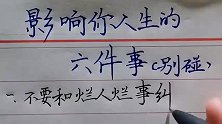 影响你人生的
六件事(别碰)
一、不要和烂人烂事纠